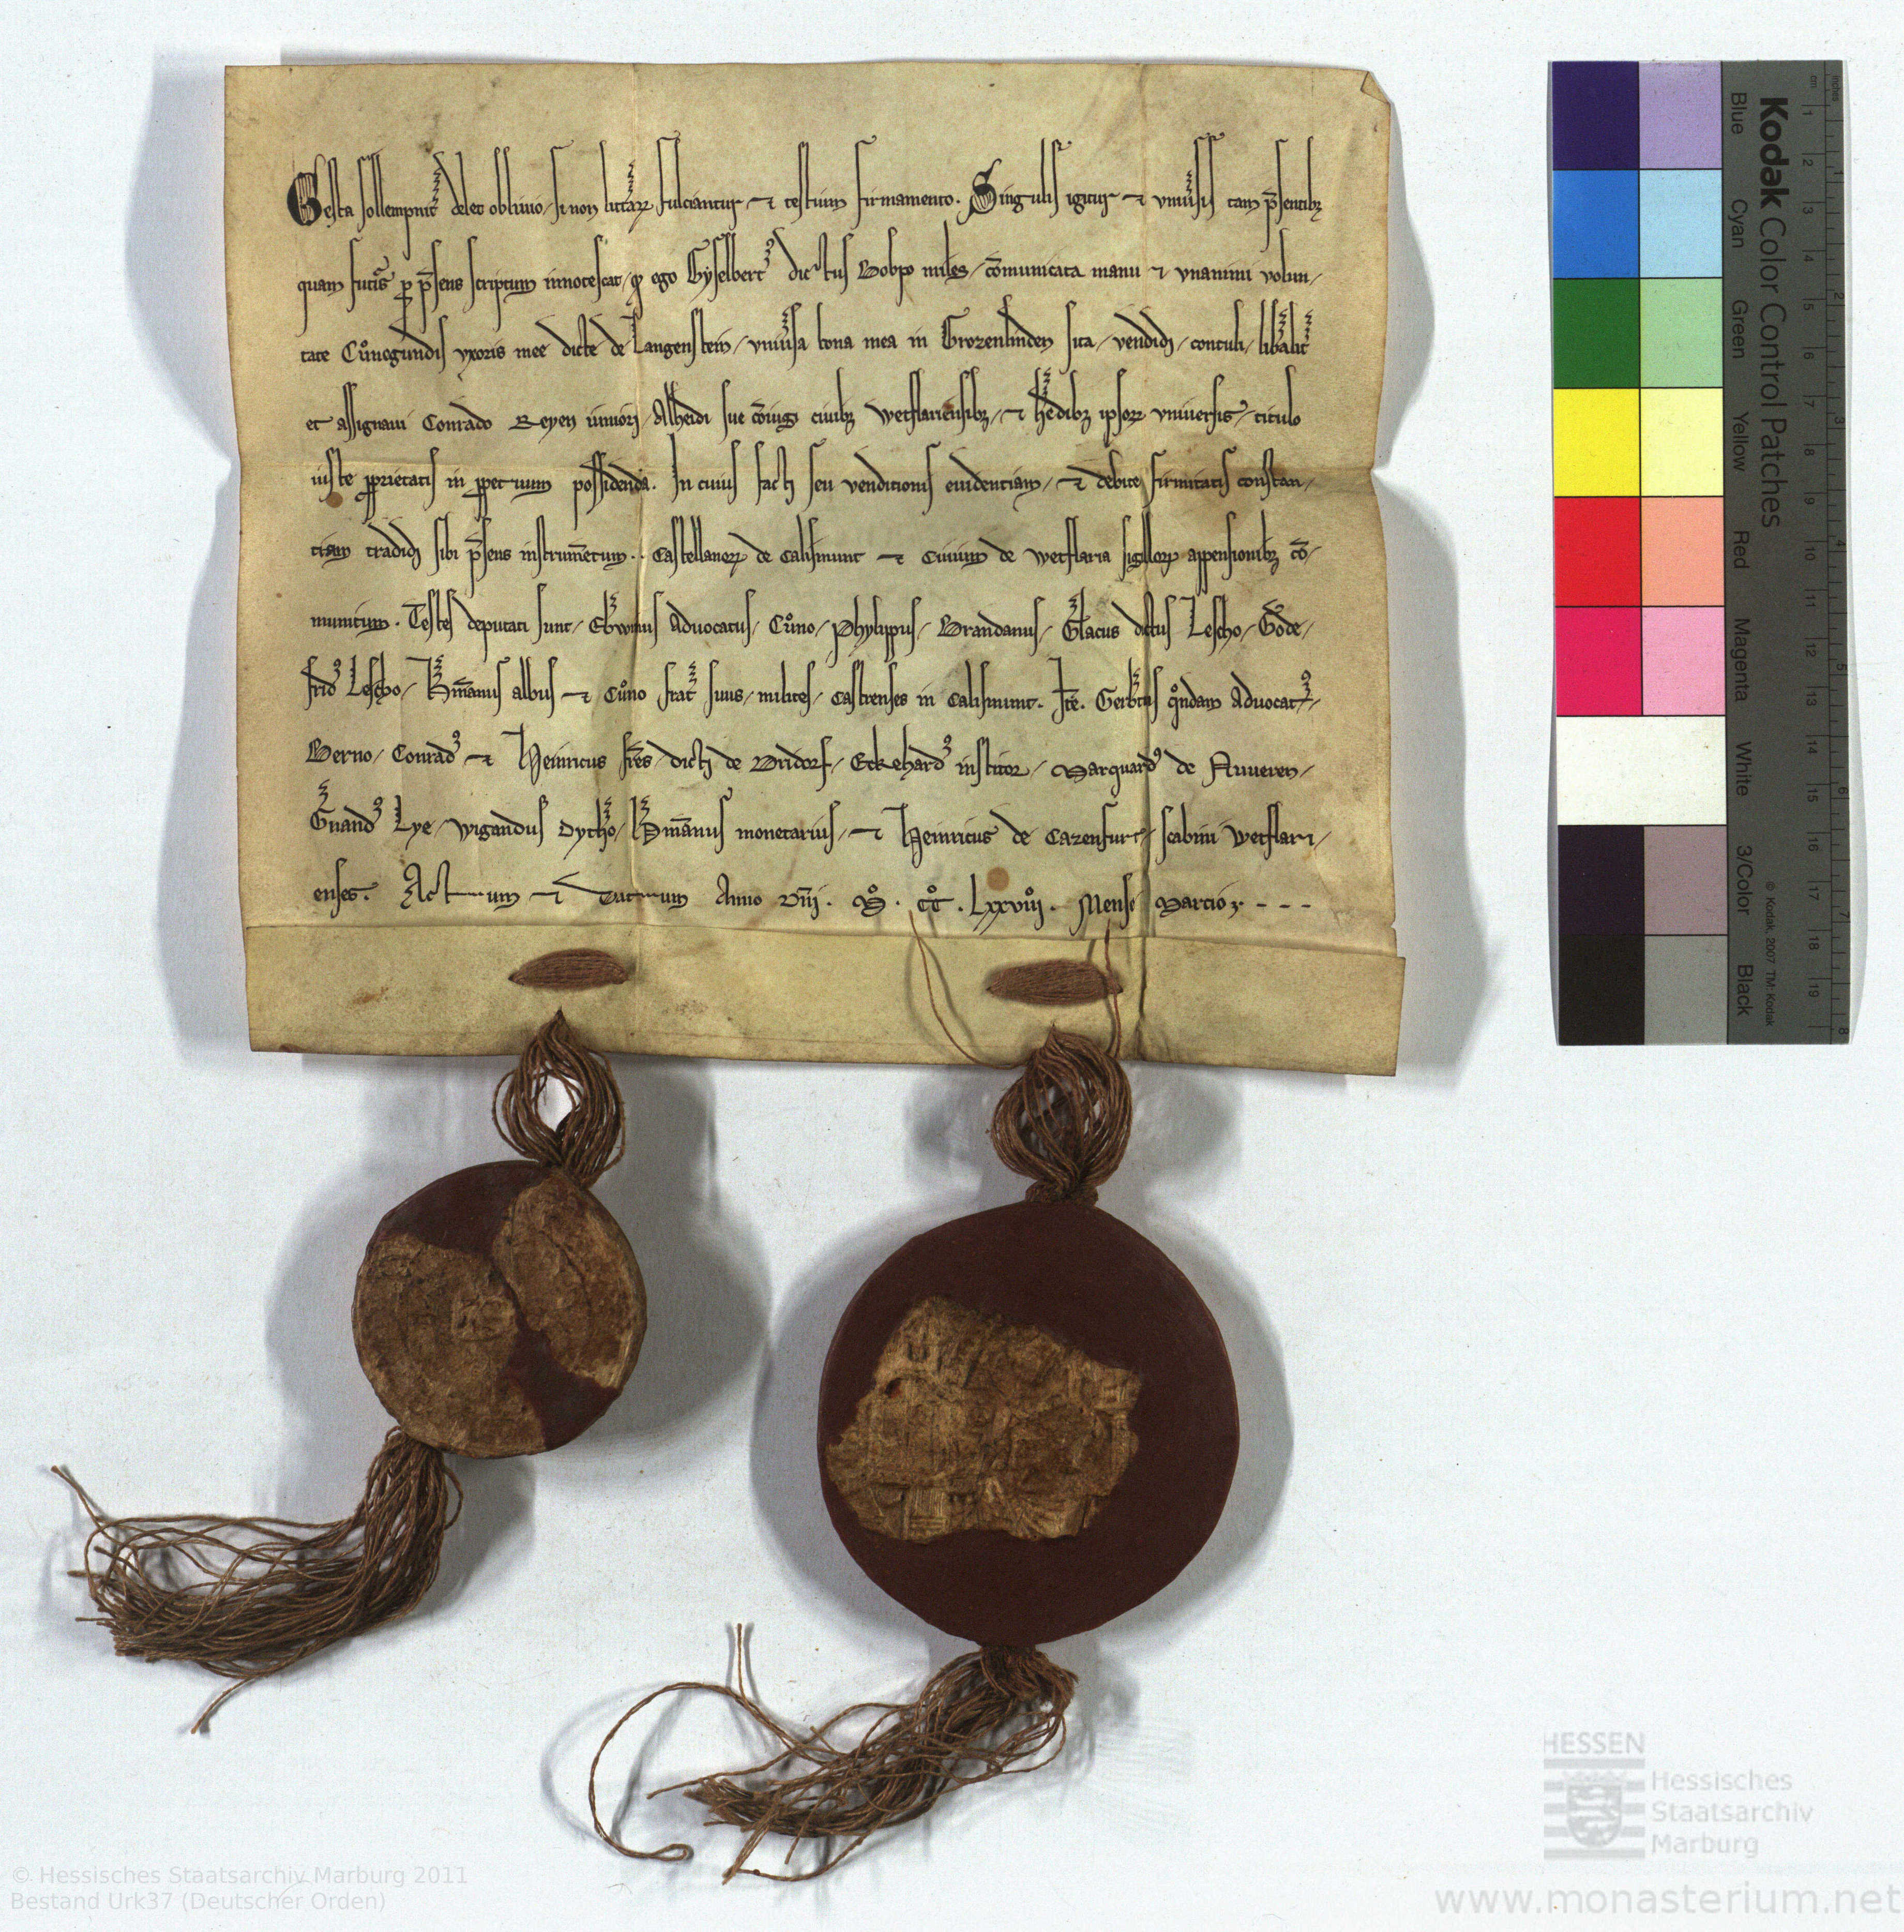 Gesta sollempnit᷑ delet obliuio / si non litt᷑aꝝ fulciantur ⁊ testium firmamento. Singulis igitur ⁊ vniu᷑sis tam p̄sentibꝫ
quam fut᷑is ꝑ p̄sens scriptum innotescat / ꝙ ego Gyselbertꝰ dictus Bobpo miles / cōmunicata manu ⁊ vnanimi volun /
tate Cůnegundis vxoris mee dicte de Langenstein / vniu᷑sa bona mea in Grozenlinden sita / vendidi / contuli / lib᷑alit᷑
et assignaui Conrado Reyen iuniori / Alheidi sue cōiugi ciuibꝫ Wetflariensibꝫ / ⁊ h᷑edibꝫ ipsoꝝ vniuersis / titulo
iuste ꝓprietatis in ꝑpetuum possidenda. In cuius facti seu venditionis euidentiam / ⁊ debite firmitatis constan /
tiam tradidi sibi p̄sens instrum̄etum . . Castellanoꝝ de Calsmunt ⁊ Ciuium de Wetflaria sigilloꝝ appensionibꝫ cō /
munitum. Testes deputati sunt / Erwinus Aduocatus / Cůno / Phylippus / Brandanus / G᷑lacus dc̄tus Lescho / Gode /
fridꝰ Lescho / H᷑mānus albus ⁊ Cůno frat᷑ suus / milites / Castrenses in Calsmunt. Itē. Gerb᷑tus qͦndam Aduocatꝰ /
Berno / Conradꝰ ⁊ Heinricus fr̄es / dicti de Dridorf / Eckehardꝰ institor / Marquardꝰ de Nuueren /
G᷑nandꝰ Lye / Wigandus Dytho / H᷑mānus monetarius / ⁊ Heinricus de Cazenfurt / scabini Wetflari /
enses. Actum ⁊ Datum Anno Dn̄i. Mͦ. CCͦ. Lxxviijͦ. Mense Marcio - - -
Kodak Color Control Patches
Blue Cyan Green Yellow Red Magenta White 3/Color Black
© Kodak, 2007 TM: Kodak
cm 1 2 3 4 5 6 7 8 9 10 11 12 13 14 15 16 17 18 19
inches 1 2 3 4 5 6 7 8
HESSEN
Hessisches
Staatsarchiv
Marburg
© Hessisches Staatsarchiv Marburg 2011
Bestand Urk37 (Deutscher Orden)
www.monasterium.net